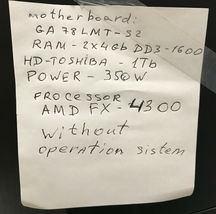 motherboard:
GA 78LMT-S2
RAM - 2x4Gb DD3-1600
HD-TOSHIBA - 1Tb
POWER - 350W
PROCESSOR
AMD FX - 4300
without
operation sistem